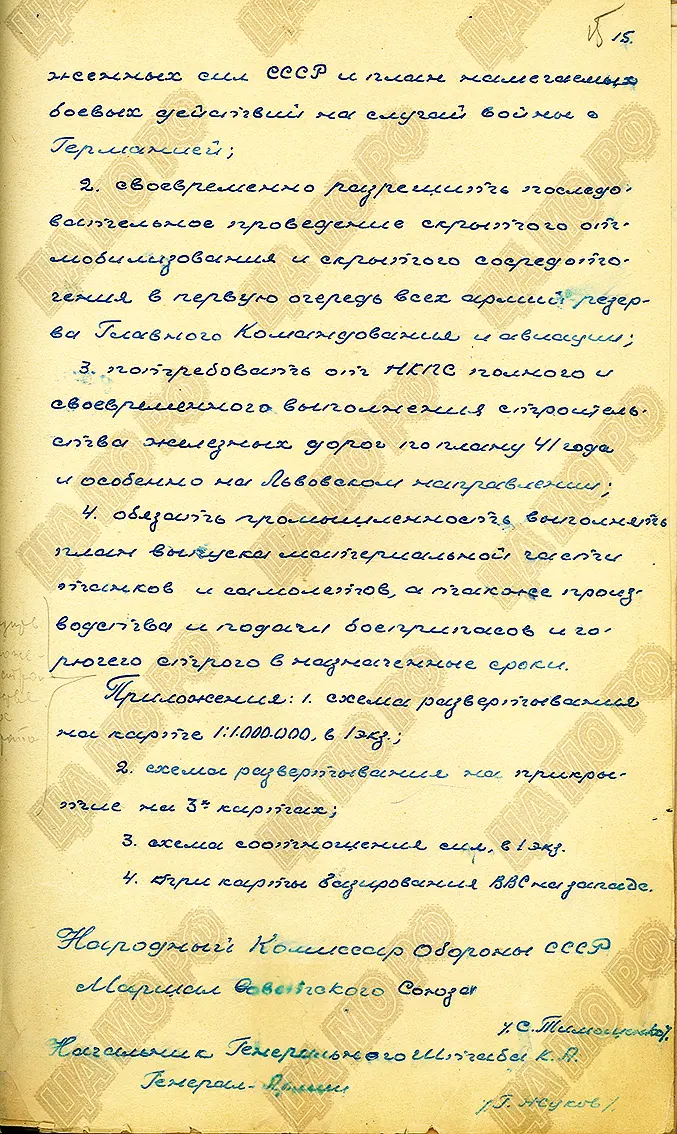 15.
женных сил СССР и план намечаемых
боевых действий на случай войны с
Германией;
2. своевременно разрешить последо-
вательное проведение скрытого от-
мобилизования и скрытого сосредото-
чения в первую очередь всех армий резер-
ва Главного Командования и авиации;
3. потребовать от НКПС полного и
своевременного выполнения строитель-
ства железных дорог по плану 41 года
и особенно на Львовском направлении;
4. обязать промышленность выполнять
план выпуска материальной части
танков и самолетов, а также произ-
водства и подачи боеприпасов и го-
рючего строго в назначенные сроки.
Приложения: 1. схема развертывания
на карте 1:1.000.000, в 1 экз.;
2. схема развертывания на прикры-
тие на 3х картах;
3. схема соотношения сил, в 1 экз.
4. три карты базирования ВВС на западе.
Народный Комиссар Обороны СССР
Маршал Советского Союза
/С. Тимошенко/.
Начальник Генерального Штаба К. А.
Генерал-Армии
/Г. Жуков/.
ЦАМО РФ